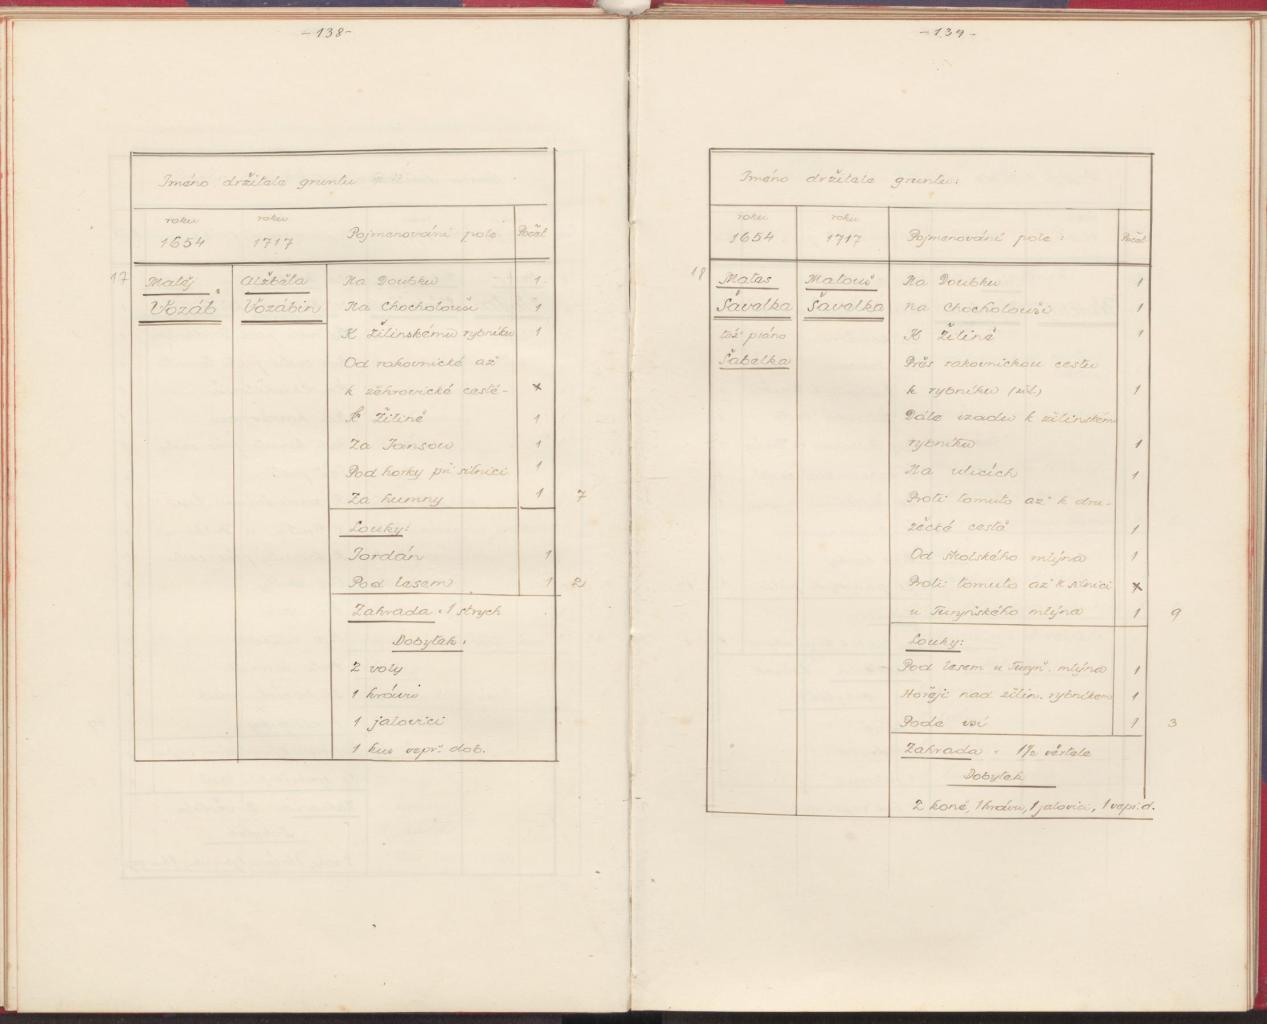 - 138 -
Jméno držitele gruntu
roku 1654
roku 1717
Pojmenování pole
Počet
17 Matěj Alžběta Na Doubku 1
Vozáb Vozábin Na Chocholouši 1
K Žilinskému rybníku 1
Od rakovnické až
k zěhrovické cestě - x
K Žilině 1
Za Jansou 1
Pod horky při silnici 1
Za humny 1 7
Louky:
Jordán 1
Pod lesem 1 2
Zahrada : 1 strych
Dobytek :
2 voly
1 krávu
1 jalovici
1 kus vepř. dob.
- 139 -
Jméno držitele gruntu:
roku 1654
roku 1717
Pojmenování pole :
Počet
18 Mates Matouš Na Doubku 1
Šavelka Šavelka na Chocholouši 1
též psáno K Žilině 1
Šabelka Přes rakovnickou cestu
k rybníku 1
Dále vzadu k žilinském
rybníku 1
Na ulicích 1
Proti tomuto až k dru-
žecké cestě 1
Od školského mlýna 1
Proti tomuto až k silnici x
u Turyňského mlýna 1 9
Louky:
Pod lesem u Turyň. mlýna 1
Hořeji nad žilin. rybníkem 1
Pode vsí 1 3
Zahrada : 1½ věrtele
Dobytek
2 koně, 1 krávu, 1 jalovici, 1 vepř. d.